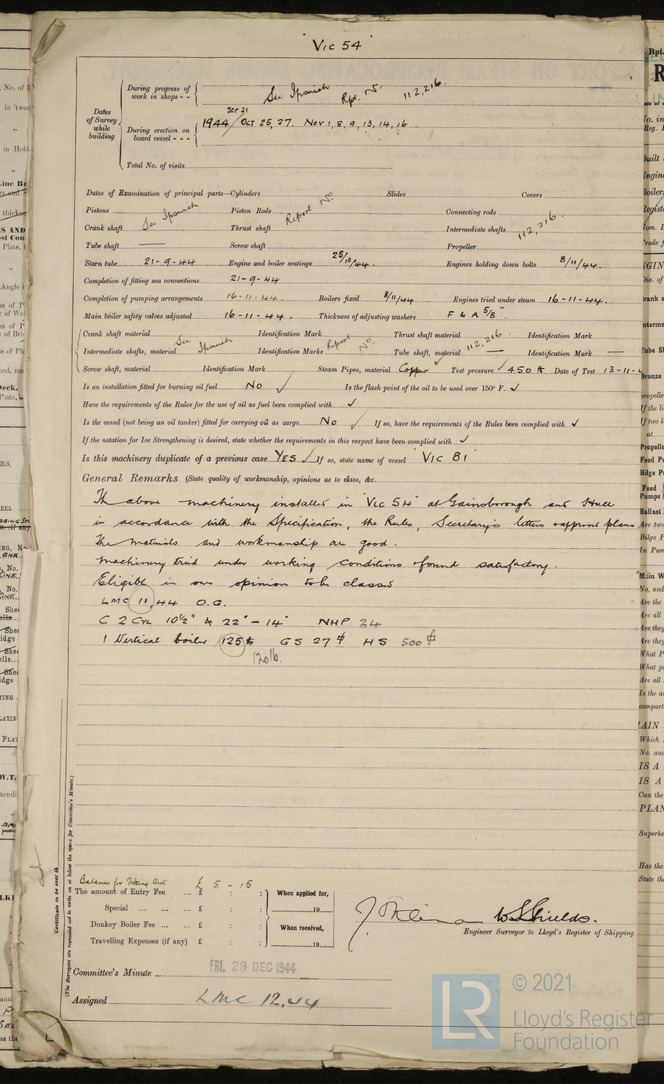 "Vic 54"
Dates of Survey while building
During progress of work in shops - -
See Ipswich Rpt. No. 112,216.
During erection on board vessel - - -
1944/ SEP 21 OCT 25, 27. NOV 1, 8, 9, 13, 14, 16
Total No. of visits
Dates of Examination of principal parts—Cylinders Slides Covers
Pistons Piston Rods Connecting rods
See Ipswich Report No. 112,216.
Crank shaft Thrust shaft Intermediate shafts
Tube shaft — Screw shaft Propeller
Stern tube 21-9-44 Engine and boiler seatings 25/10/44. Engines holding down bolts 8/11/44.
Completion of fitting sea connections 21-9-44
Completion of pumping arrangements 16-11-44. Boilers fixed 8/11/44 Engines tried under steam 16-11-44.
Main boiler safety valves adjusted 16-11-44. Thickness of adjusting washers F & A 5/8".
Crank shaft material Identification Mark Thrust shaft material Identification Mark
See Ipswich Report No. 112,216.
Intermediate shafts, material Identification Marks Tube shaft, material Identification Mark —
Screw shaft, material Identification Mark Steam Pipes, material Copper Test pressure 450 Date of Test 13-11-
Is an installation fitted for burning oil fuel No ✓ Is the flash point of the oil to be used over 150° F. ✓
Have the requirements of the Rules for the use of oil as fuel been complied with ✓
Is the vessel (not being an oil tanker) fitted for carrying oil as cargo No ✓ If so, have the requirements of the Rules been complied with ✓
If the notation for Ice Strengthening is desired, state whether the requirements in this respect have been complied with ✓
Is this machinery duplicate of a previous case YES ✓ If so, state name of vessel "VIC 81"
General Remarks (State quality of workmanship, opinions as to class, &c.
The above machinery installed in "Vic 54" at Gainsborough and Hull
in accordance with the Specification, the Rules, Secretary's letters & approved plans
The materials and workmanship are good.
Machinery tried under working conditions & found satisfactory.
Eligible in our opinion to be classed
LMC 11,44 O.G.
C 2 Cyl 10½" & 22" - 14" NHP 24
1 Vertical boiler 125 GS 27 HS 500
120 lb.
(The Surveyors are requested not to write on or below the space for Committee's Minute.)
Certificate to be sent to
Balance for Fitting Out £ 5 - 15
The amount of Entry Fee ... £ : : When applied for,
Special ... ... ... £ : : 19
Donkey Boiler Fee ... £ : : When received,
Travelling Expenses (if any) £ : : 19
W.S. Shields.
Engineer Surveyor to Lloyd's Register of Shipping.
Committee's Minute FRI. 29 DEC 1944
Assigned LMC 12,44
LR © 2021
Lloyd's Register
Foundation